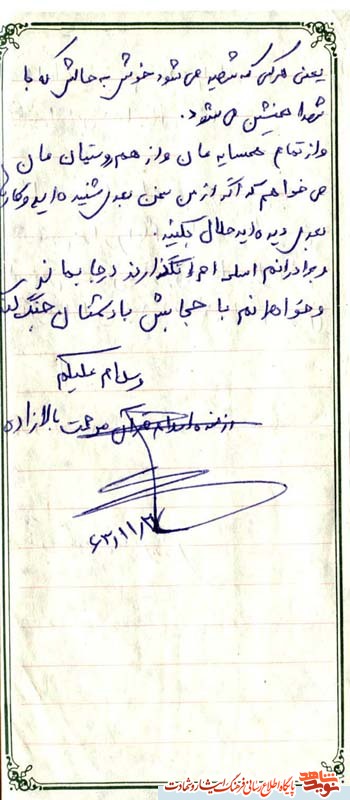 یعنی هرکس که شهید می شود خوش به حالش که با
شهدا همنشین می شود.
و از تمام همسایه مان و از هم روستیان مان
می خواهم که اگر از من سخن بدی شنیده اید و کار
بدی دیده اید حلال بکنید.
و برادرانم اسلحه ام را نگذارند در جا بماند
و خواهرانم با حجابش با دشمنان جنگ
والسلام علیکم
رزمنده بالازاده
۶۳/۱۱/۳
نوید شاهد
پایگاه اطلاع رسانی فرهنگ ایثار و شهادت